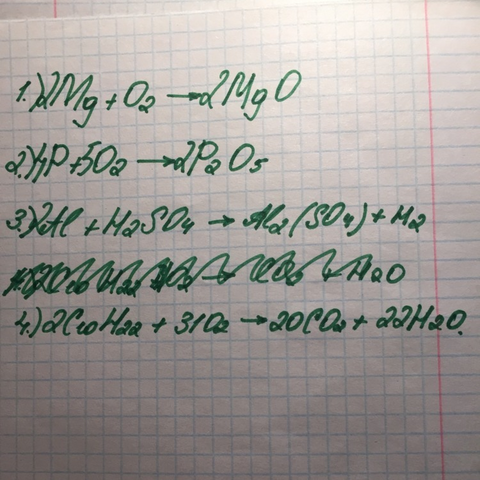 1.) 2Mg + O₂ → 2MgO
2.) 4P + 5O₂ → 2P₂O₅
3.) 2Al + H₂SO₄ → Al₂(SO₄) + H₂
H₂O
4.) 2C₁₀H₂₂ + 31O₂ → 20CO₂ + 22H₂O.